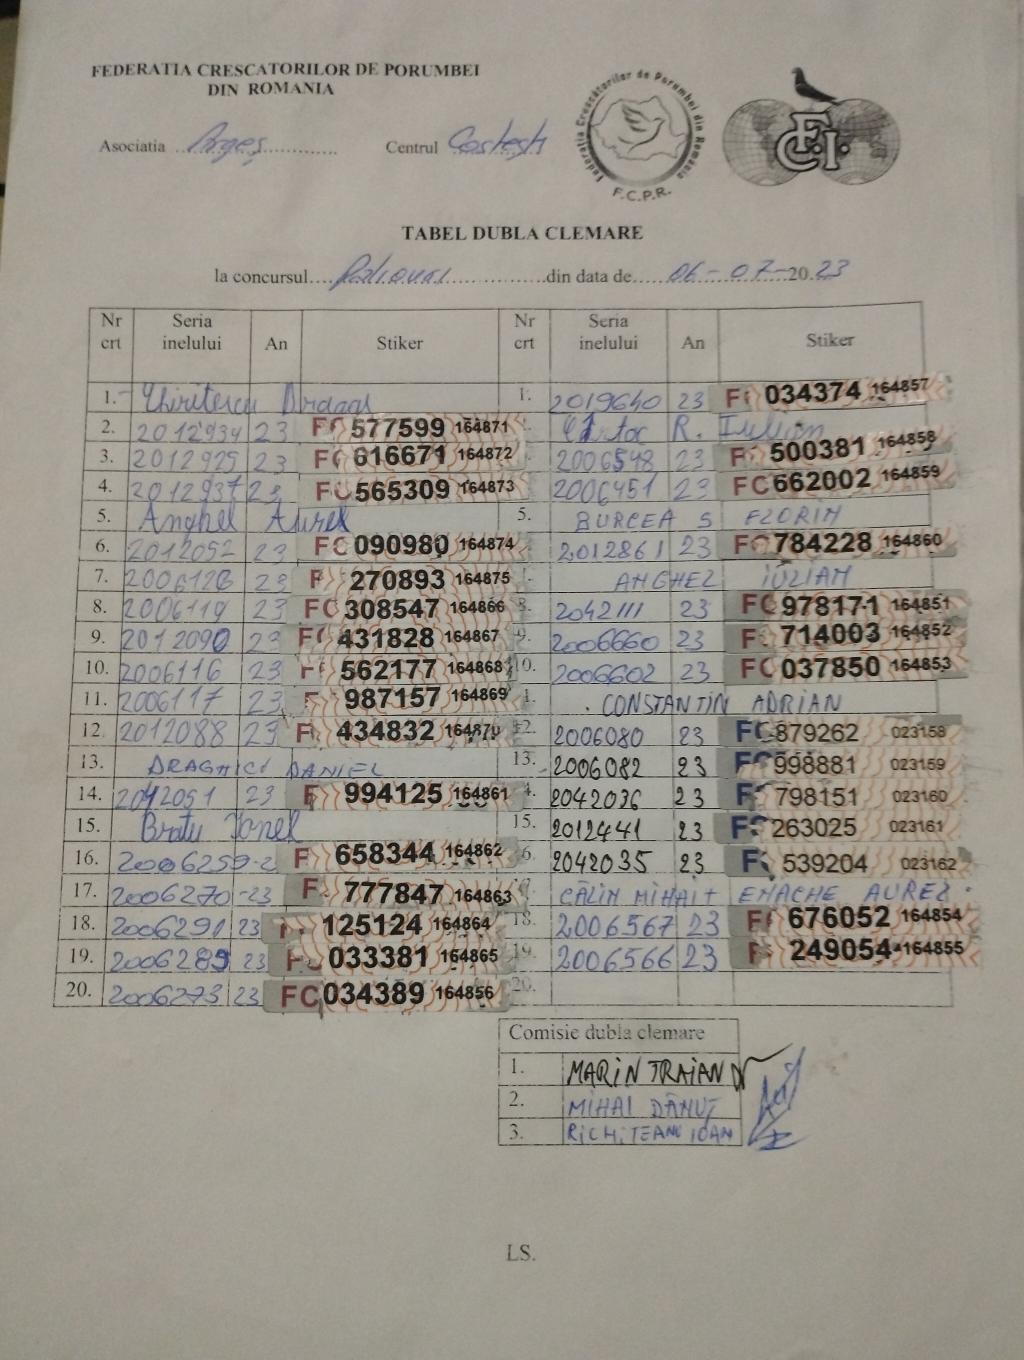 FEDERATIA CRESCATORILOR DE PORUMBEI
DIN ROMANIA
Asociatia Argeș Centrul Costești
Federatia Crescătorilor de Porumbei din România
F.C.P.R.
F.C.I.
TABEL DUBLA CLEMARE
la concursul din data de 06-07-2023
Nr crt Seria inelului An Stiker Nr crt Seria inelului An Stiker
1. 1. 2019640 23 F 034374 164857
2. 2012934 23 FC 577599 164871 R. Iulian
3. 2012925 23 FC 616671 164872 2006548 23 F 500381 164858
4. 2012937 23 FC 565309 164873 2006451 23 FC 662002 164859
5. Anghel Aurel 5. BURCEA S FLORIN
6. 2012052 23 FC 090980 164874 2012861 23 FC 784228 164860
7. 2006126 23 F 270893 164875 ANGHEL IULIAN
8. 2006119 23 FC 308547 164866 8. 2042111 23 FC 978171 164851
9. 2012090 23 FC 431828 164867 9. 2006660 23 F 714003 164852
10. 2006116 23 F 562177 164868 10. 2006602 23 FC 037850 164853
11. 2006117 23 F 987157 164869 CONSTANTIN ADRIAN
12. 2012088 23 F 434832 164870 12. 2006080 23 FC 879262 023158
13. DRAGHICI DANIEL 13. 2006082 23 FC 998881 023159
14. 2042051 23 F 994125 164861 2042036 23 F 798151 023160
15. Bratu Ionel 15. 2012441 23 FC 263025 023161
16. 2006259-2 F 658344 164862 6. 2042035 23 F 539204 023162
17. 2006270-23 F 777847 164863 CĂLIN MIHAI + ENACHE AUREL
18. 2006291 23 125124 164864 18. 2006567 23 F 676052 164854
19. 2006289 23 F 033381 164865 19. 2006566 23 F 249054 164855
20. 2006273 23 FC 034389 164856 20.
Comisie dubla clemare
1. MARIN TRAIAN
2. MIHAI DĂNUȚ
3. RICHITEANU IOAN
LS.